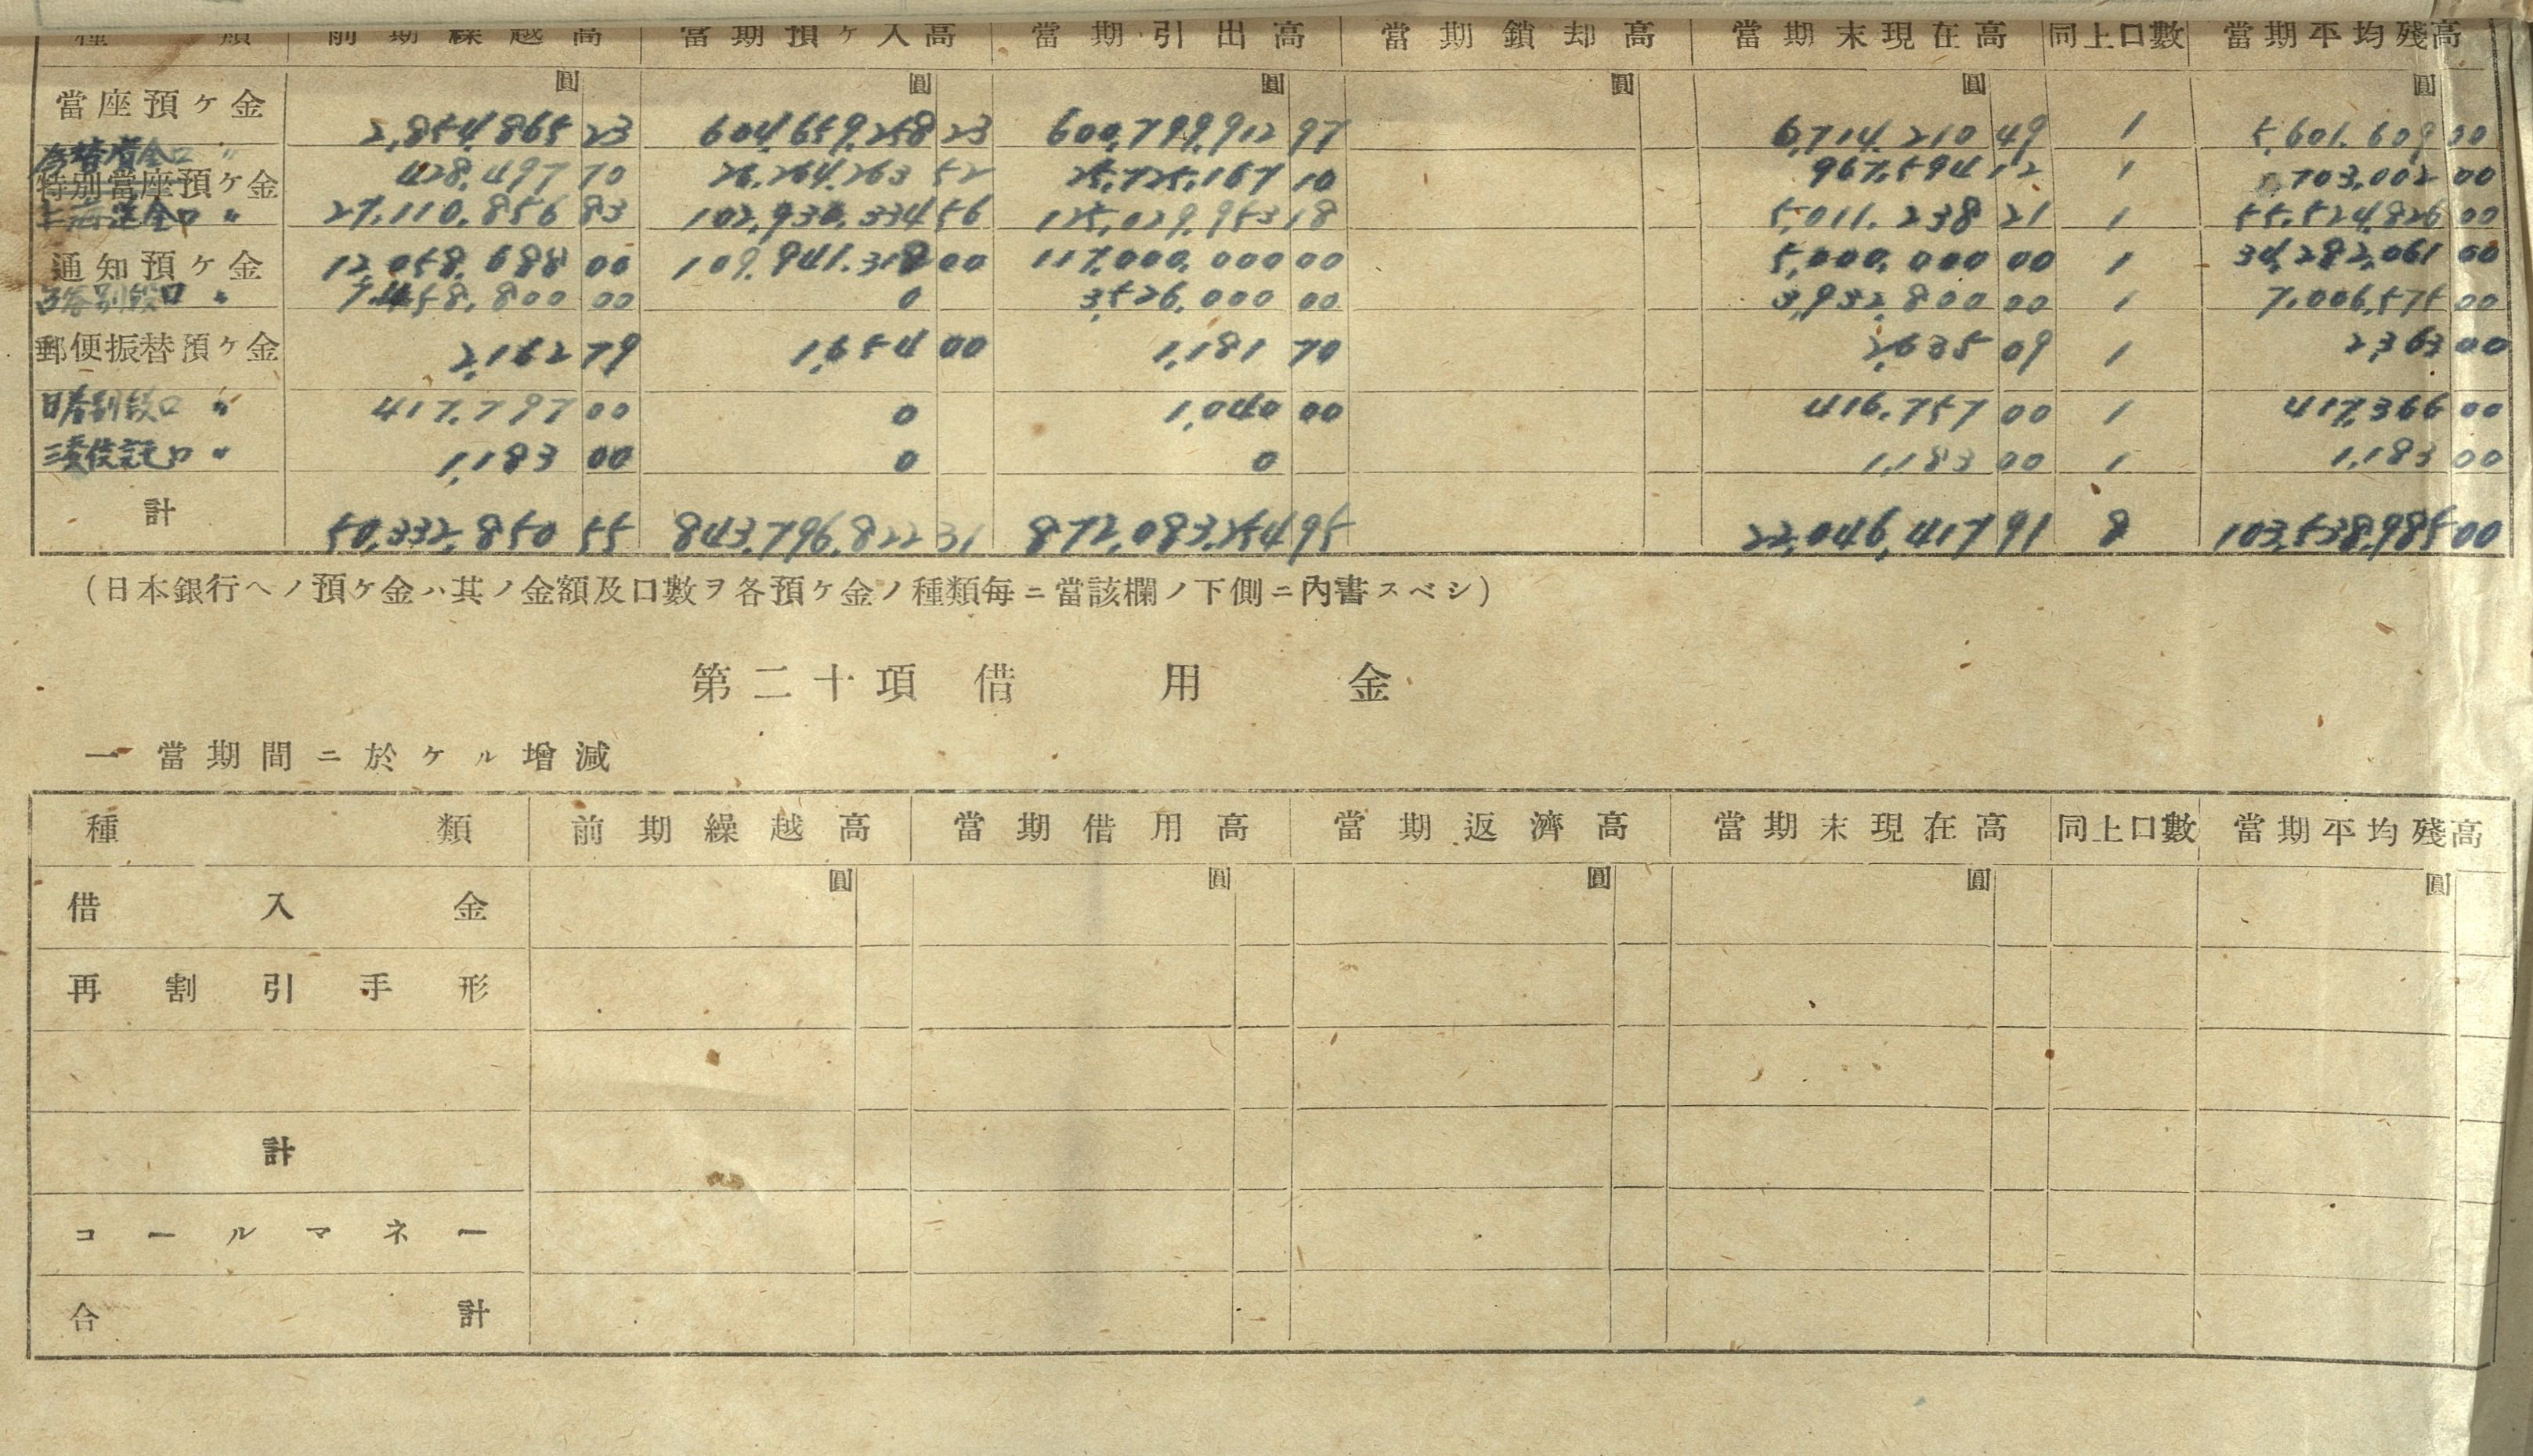 種類 前期繰越高 當期預ヶ入高 當期引出高 當期鎖却高 當期末現在高 同上口數 當期平均殘高
圓 圓 圓 圓 圓 圓
當座預ヶ金 2,854,865 23 604,659,258 23 600,799,912 97 6,714,210 49 1 5,601,609 00
特別當座預ヶ金 428,497 70 26,264,263 52 25,725,167 10 967,594 12 1 703,002 00
上海送金口 〃 27,110,856 83 102,930,334 56 125,029,953 18 5,011,238 21 1 55,524,826 00
通知預ヶ金 12,058,688 00 109,941,312 00 117,000,000 00 5,000,000 00 1 34,282,061 00
別段口 〃 7,458,800 00 0 3,526,000 00 3,932,800 00 1 7,006,575 00
郵便振替預ヶ金 2,162 79 1,654 00 1,181 70 2,635 09 1 2,363 00
別段口 〃 417,797 00 0 1,040 00 416,757 00 1 417,366 00
口 〃 1,183 00 0 0 1,183 00 1 1,183 00
計 50,332,850 55 843,796,822 31 872,083,254 95 22,046,417 91 8 103,538,985 00
(日本銀行ヘノ預ヶ金ハ其ノ金額及口數ヲ各預ヶ金ノ種類每ニ當該欄ノ下側ニ內書スベシ)
第二十項 借用金
一 當期間ニ於ケル增減
種類 前期繰越高 當期借用高 當期返濟高 當期末現在高 同上口數 當期平均殘高
圓 圓 圓 圓 圓
借入金
再割引手形
計
コールマネー
合計